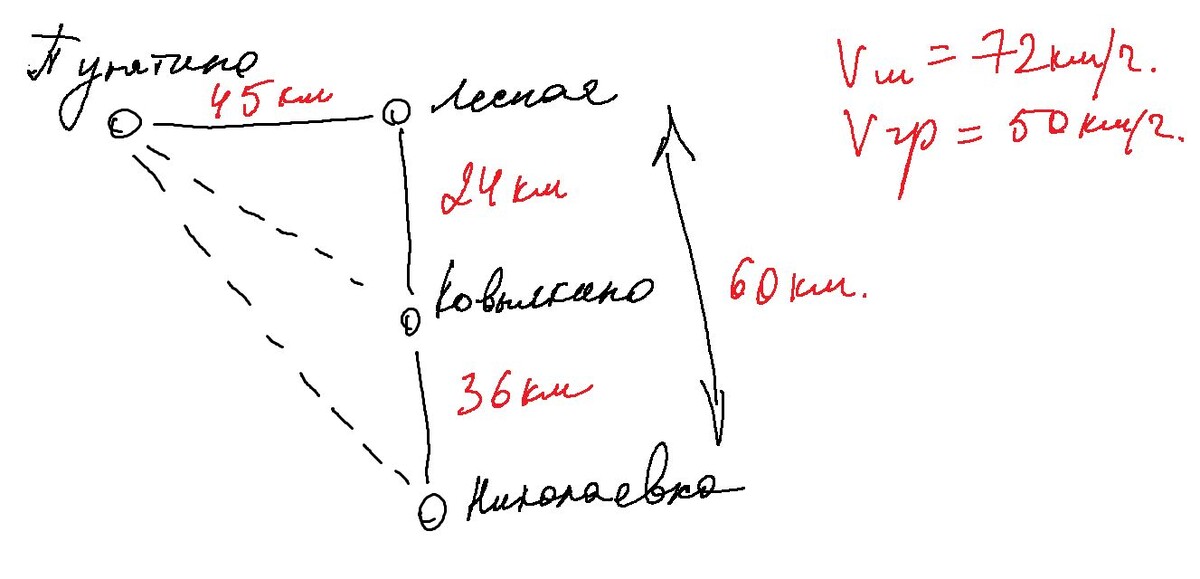 Пунятино
45 км
Лесная
24 км
Ковылкино
60 км.
36 км
Николаевка
Vш = 72 км/ч.
Vгр = 50 км/ч.